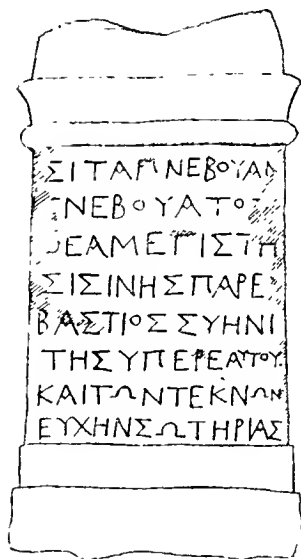 ΣΙΤΑΡΝΕΒΟΥΑΝ
ΝΕΒΟΥΑΤΟ
ΘΕΑΜΕΓΙΣΤΗ
ΣΙΣΙΝΗΣΠΑΡΕ
ΒΑΣΤΙΟΣΣΥΗΝΙ
ΤΗΣΥΠΕΡΕΑΤΟΥ
ΚΑΙΤΩΝΤΕΚΝΩΝ
ΕΥΧΗΝΣΩΤΗΡΙΑΣ